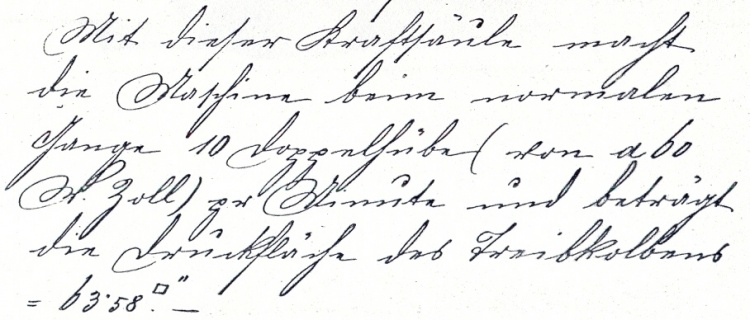 Mit dieser Kraftsäule macht
die Maschine beim normalen
Gange 10 Doppelhübe (von a 60
W. Zoll) pr Minute und beträgt
die Druckfläche des Treibkolbens
= 63·58 □". —